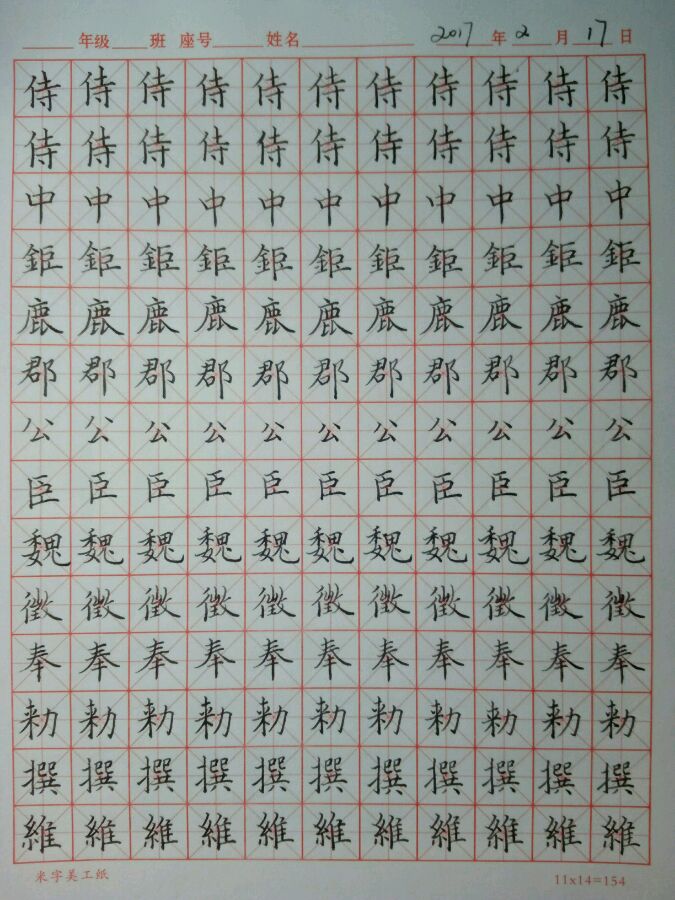 年级 班 座号 姓名 2017年2月17日
侍侍侍侍侍侍侍侍侍侍侍
侍侍侍侍侍侍侍侍侍侍侍
中中中中中中中中中中中
鉅鉅鉅鉅鉅鉅鉅鉅鉅鉅鉅
鹿鹿鹿鹿鹿鹿鹿鹿鹿鹿鹿
郡郡郡郡郡郡郡郡郡郡郡
公公公公公公公公公公公
臣臣臣臣臣臣臣臣臣臣臣
魏魏魏魏魏魏魏魏魏魏魏
徵徵徵徵徵徵徵徵徵徵徵
奉奉奉奉奉奉奉奉奉奉奉
勑勑勑勑勑勑勑勑勑勑勑
撰撰撰撰撰撰撰撰撰撰撰
維維維維維維維維維維維
米字美工纸 11x14=154